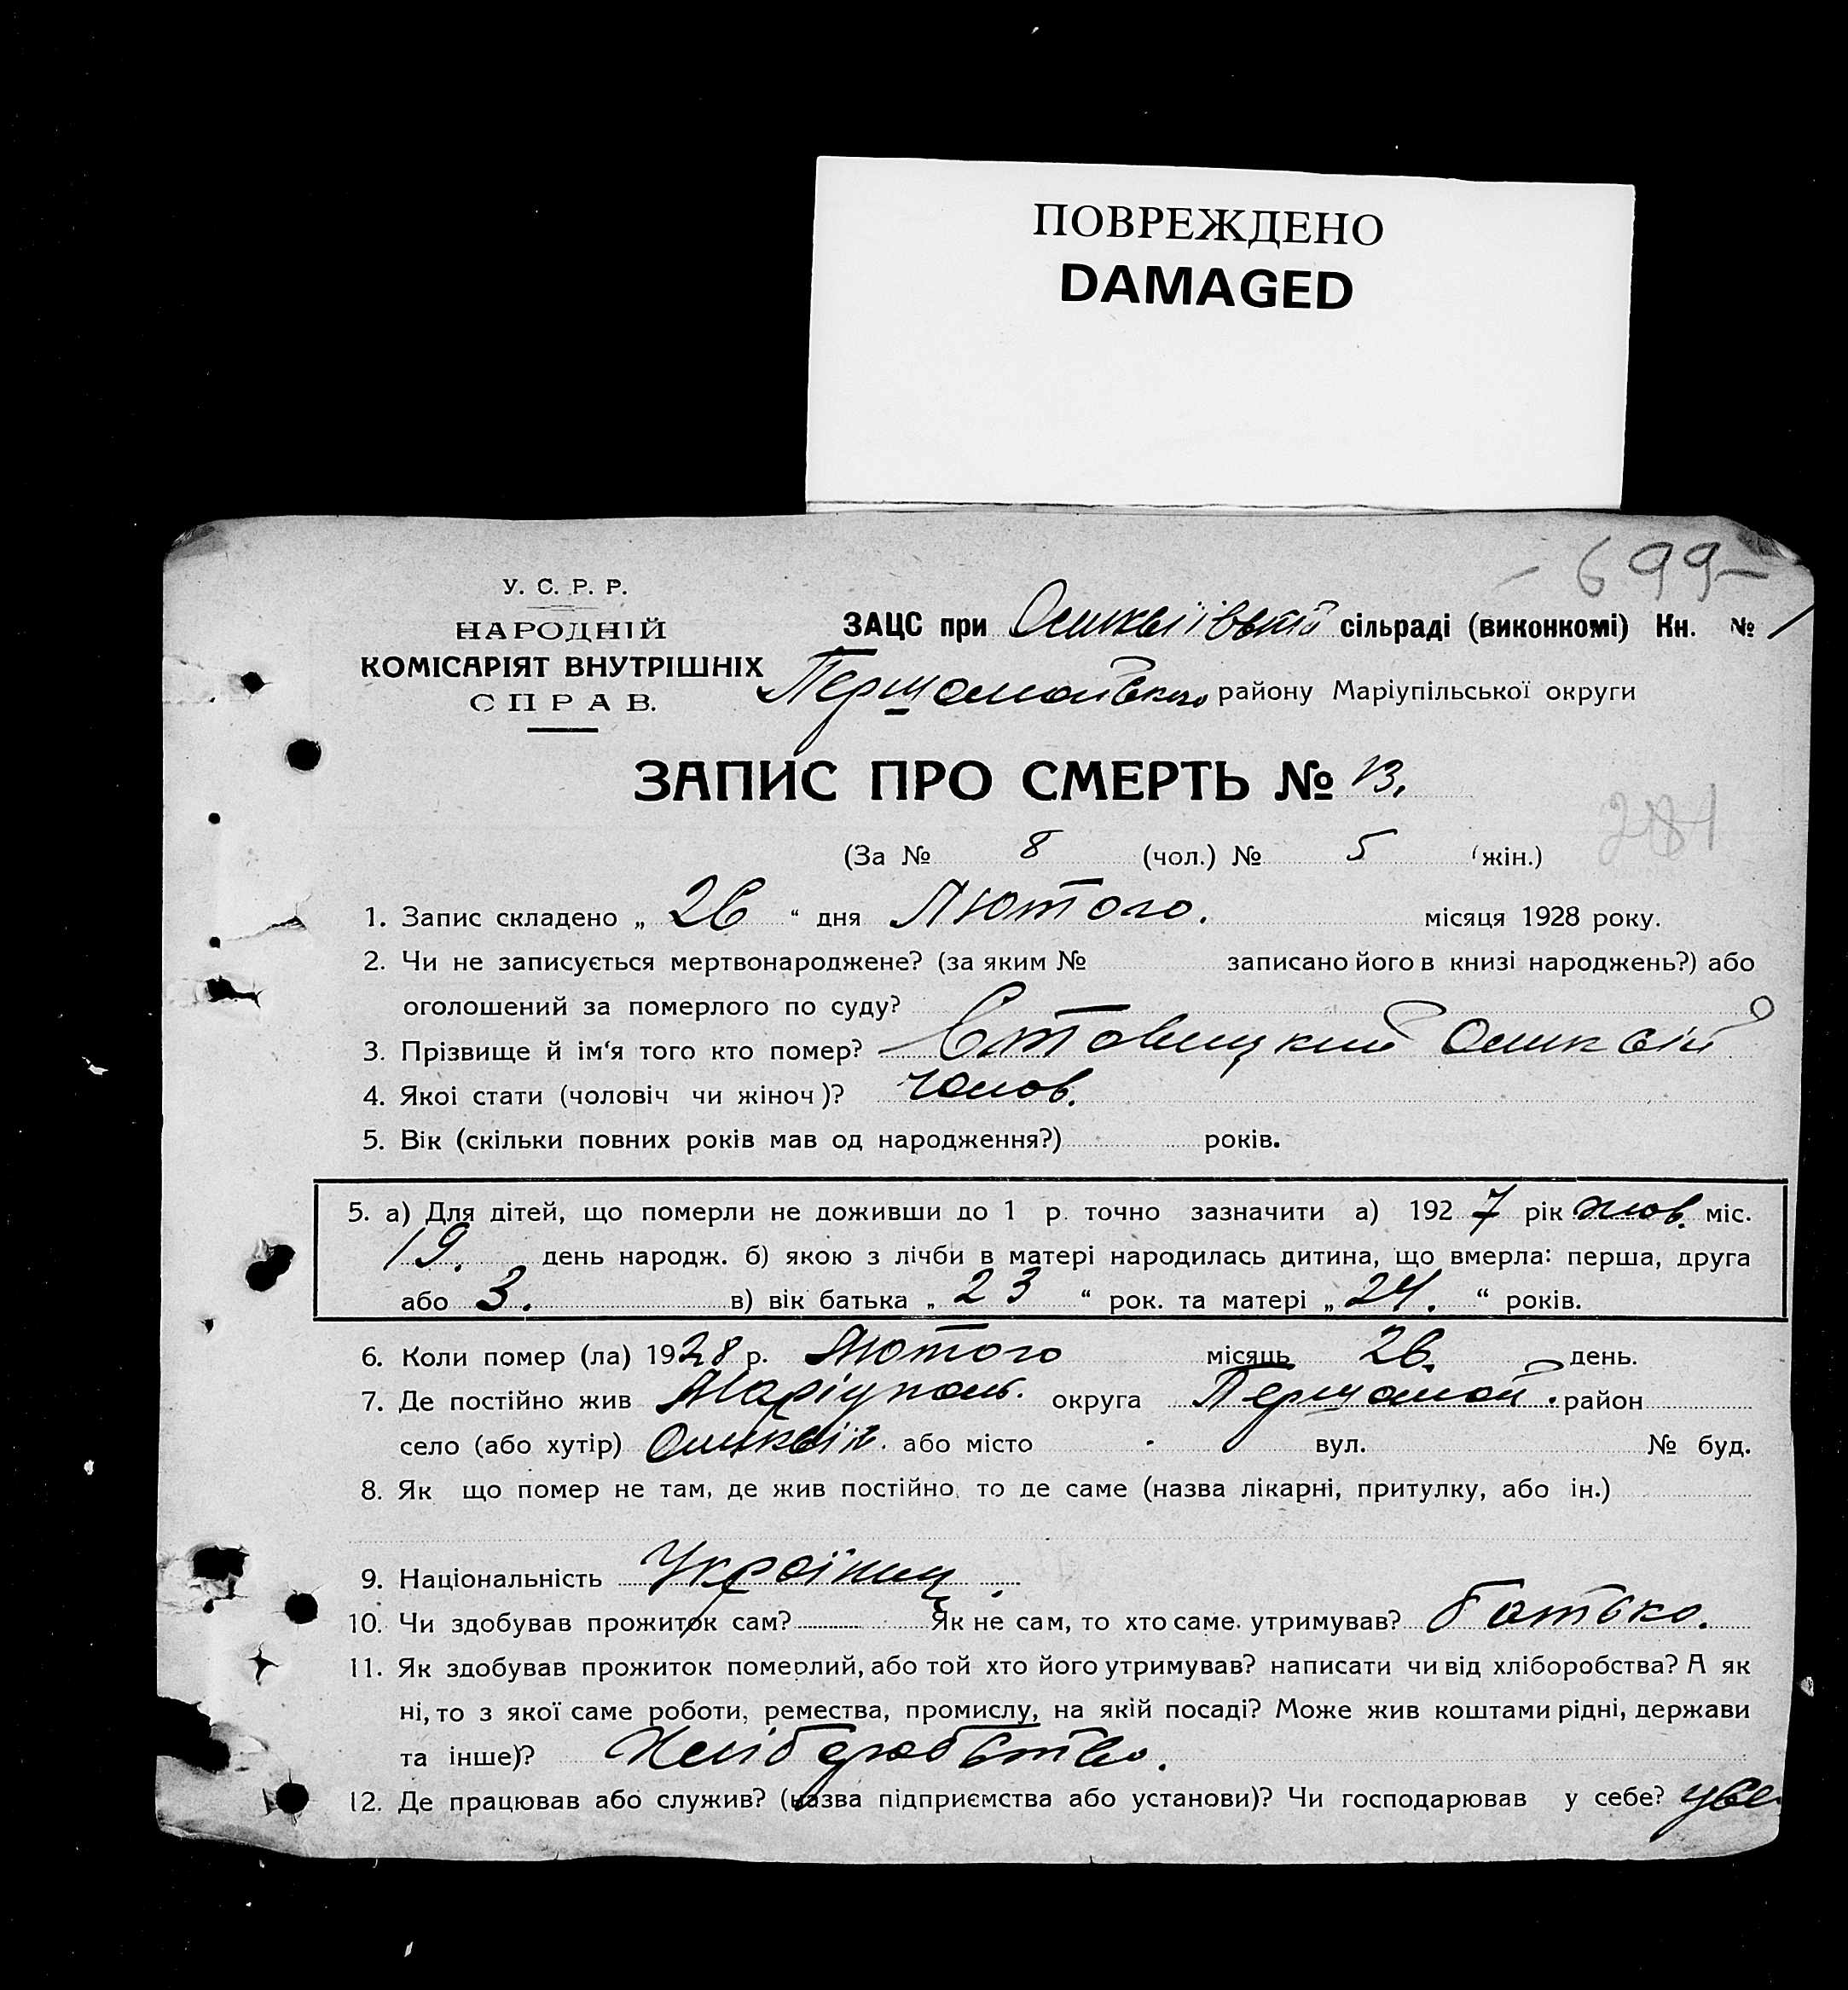 ПОВРЕЖДЕНО
DAMAGED
- 699 -
У. С. Р. Р.
НАРОДНІЙ
КОМІСАРІЯТ ВНУТРІШНІХ
СПРАВ.
ЗАЦС при сільраді (виконкомі) Кн. № 1
Першомайського району Маріупільської округи
ЗАПИС ПРО СМЕРТЬ № 13.
(За № 8 (чол.) № 5 (жін.)
1. Запис складено „ 26 “ дня Лютого. місяця 1928 року.
2. Чи не записується мертвонароджене? (за яким № записано його в книзі народжень?) або
оголошений за померлого по суду?
3. Прізвище й ім‘я того кто помер? Ставицкий
4. Якої стати (чоловіч чи жіноч)? чолов.
5. Вік (скільки повних років мав од народження?) років.
5. а) Для дітей, що померли не доживши до 1 р. точно зазначити а) 1927 рік міс.
19. день народж. б) якою з лічби в матері народилась дитина, що вмерла: перша, друга
або 3. в) вік батька „ 23 “ рок. та матері „ 24. “ років.
6. Коли помер (ла) 1928 р. Лютого місяць 26. день.
7. Де постійно жив Маріуполь. округа Першомай. район
село (або хутір) або місто вул. № буд.
8. Як що помер не там, де жив постійно, то де саме (назва лікарні, притулку, або ін.)
9. Національність Українец.
10. Чи здобував прожиток сам? Як не сам, то хто саме. утримував? батько.
11. Як здобував прожиток померлий, або той хто його утримував? написати чи від хліборобства? А як
ні, то з якої саме роботи, ремества, промислу, на якій посаді? Може жив коштами рідні, держави
та інше)? Хліборобство.
12. Де працював або служив? (назва підприємства або установи)? Чи господарював у себе?